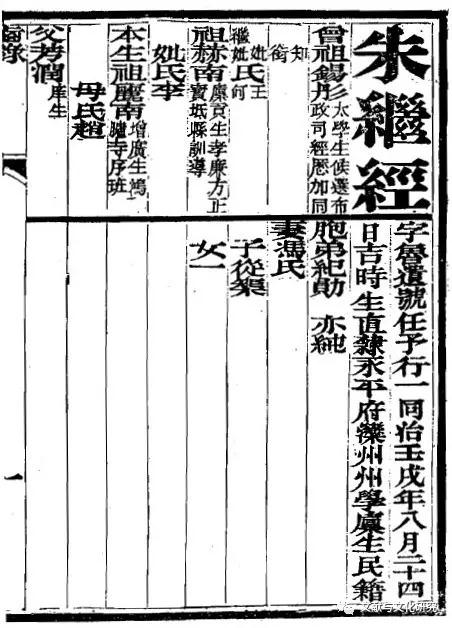 朱繼經
字魯遺號任予行一同治壬戌年八月二十四
日吉時生直隸永平府灤州州學廩生民籍
曾祖錫彤太學生候選布政司經歷加同
知銜
妣氏王
繼妣氏何
祖赫南廩貢生孝廉方正寶坻縣訓導
妣氏李
本生祖南增廣生鴻臚寺序班
母氏趙
父芳潤庠生
胞弟紀勛 亦純
妻馮氏
子從榘
女一
齒錄
一
文献与文化研究